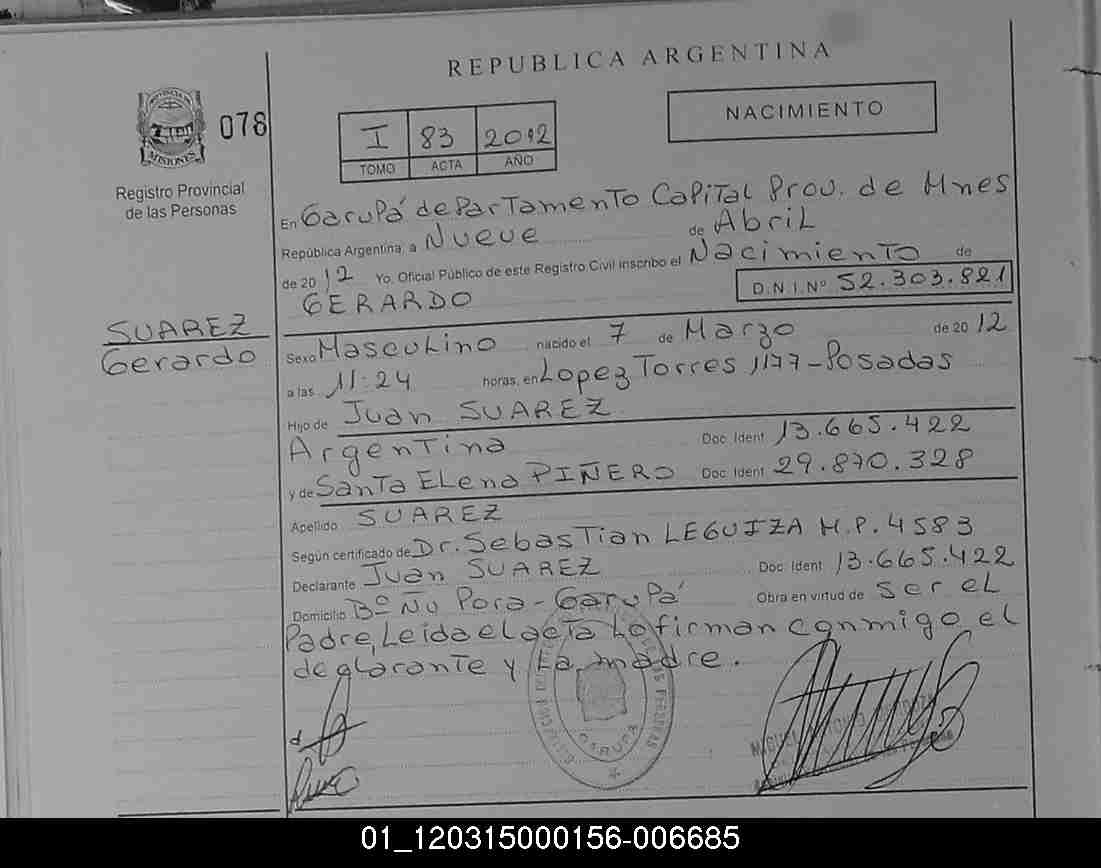 REPUBLICA ARGENTINA
NACIMIENTO
PROVINCIA DE MISIONES
078
I 83 2012
TOMO ACTA AÑO
Registro Provincial
de las Personas
En Garupá departamento Capital Prov. de Mnes
República Argentina, a Nueve de Abril
de 2012 Yo, Oficial Público de este Registro Civil inscribo el Nacimiento de
GERARDO D.N.I.Nº 52.303.821
SUAREZ
Gerardo
Sexo Masculino nacido el 7 de Marzo de 2012
a las 11:24 horas, en Lopez Torres 1177-Posadas
Hijo de Juan SUAREZ
Argentina Doc. Ident 13.665.422
y de Santa Elena PIÑERO Doc. Ident 29.870.328
Apellido SUAREZ
Según certificado de Dr. Sebastian LEGUIZA M.P. 4583
Declarante Juan SUAREZ Doc. Ident 13.665.422
Domicilio Bº Ñu Pora - Garupá Obra en virtud de ser el
Padre, Leida el acta lo firman conmigo el
declarante y la madre.
GARUPA
01_120315000156-006685